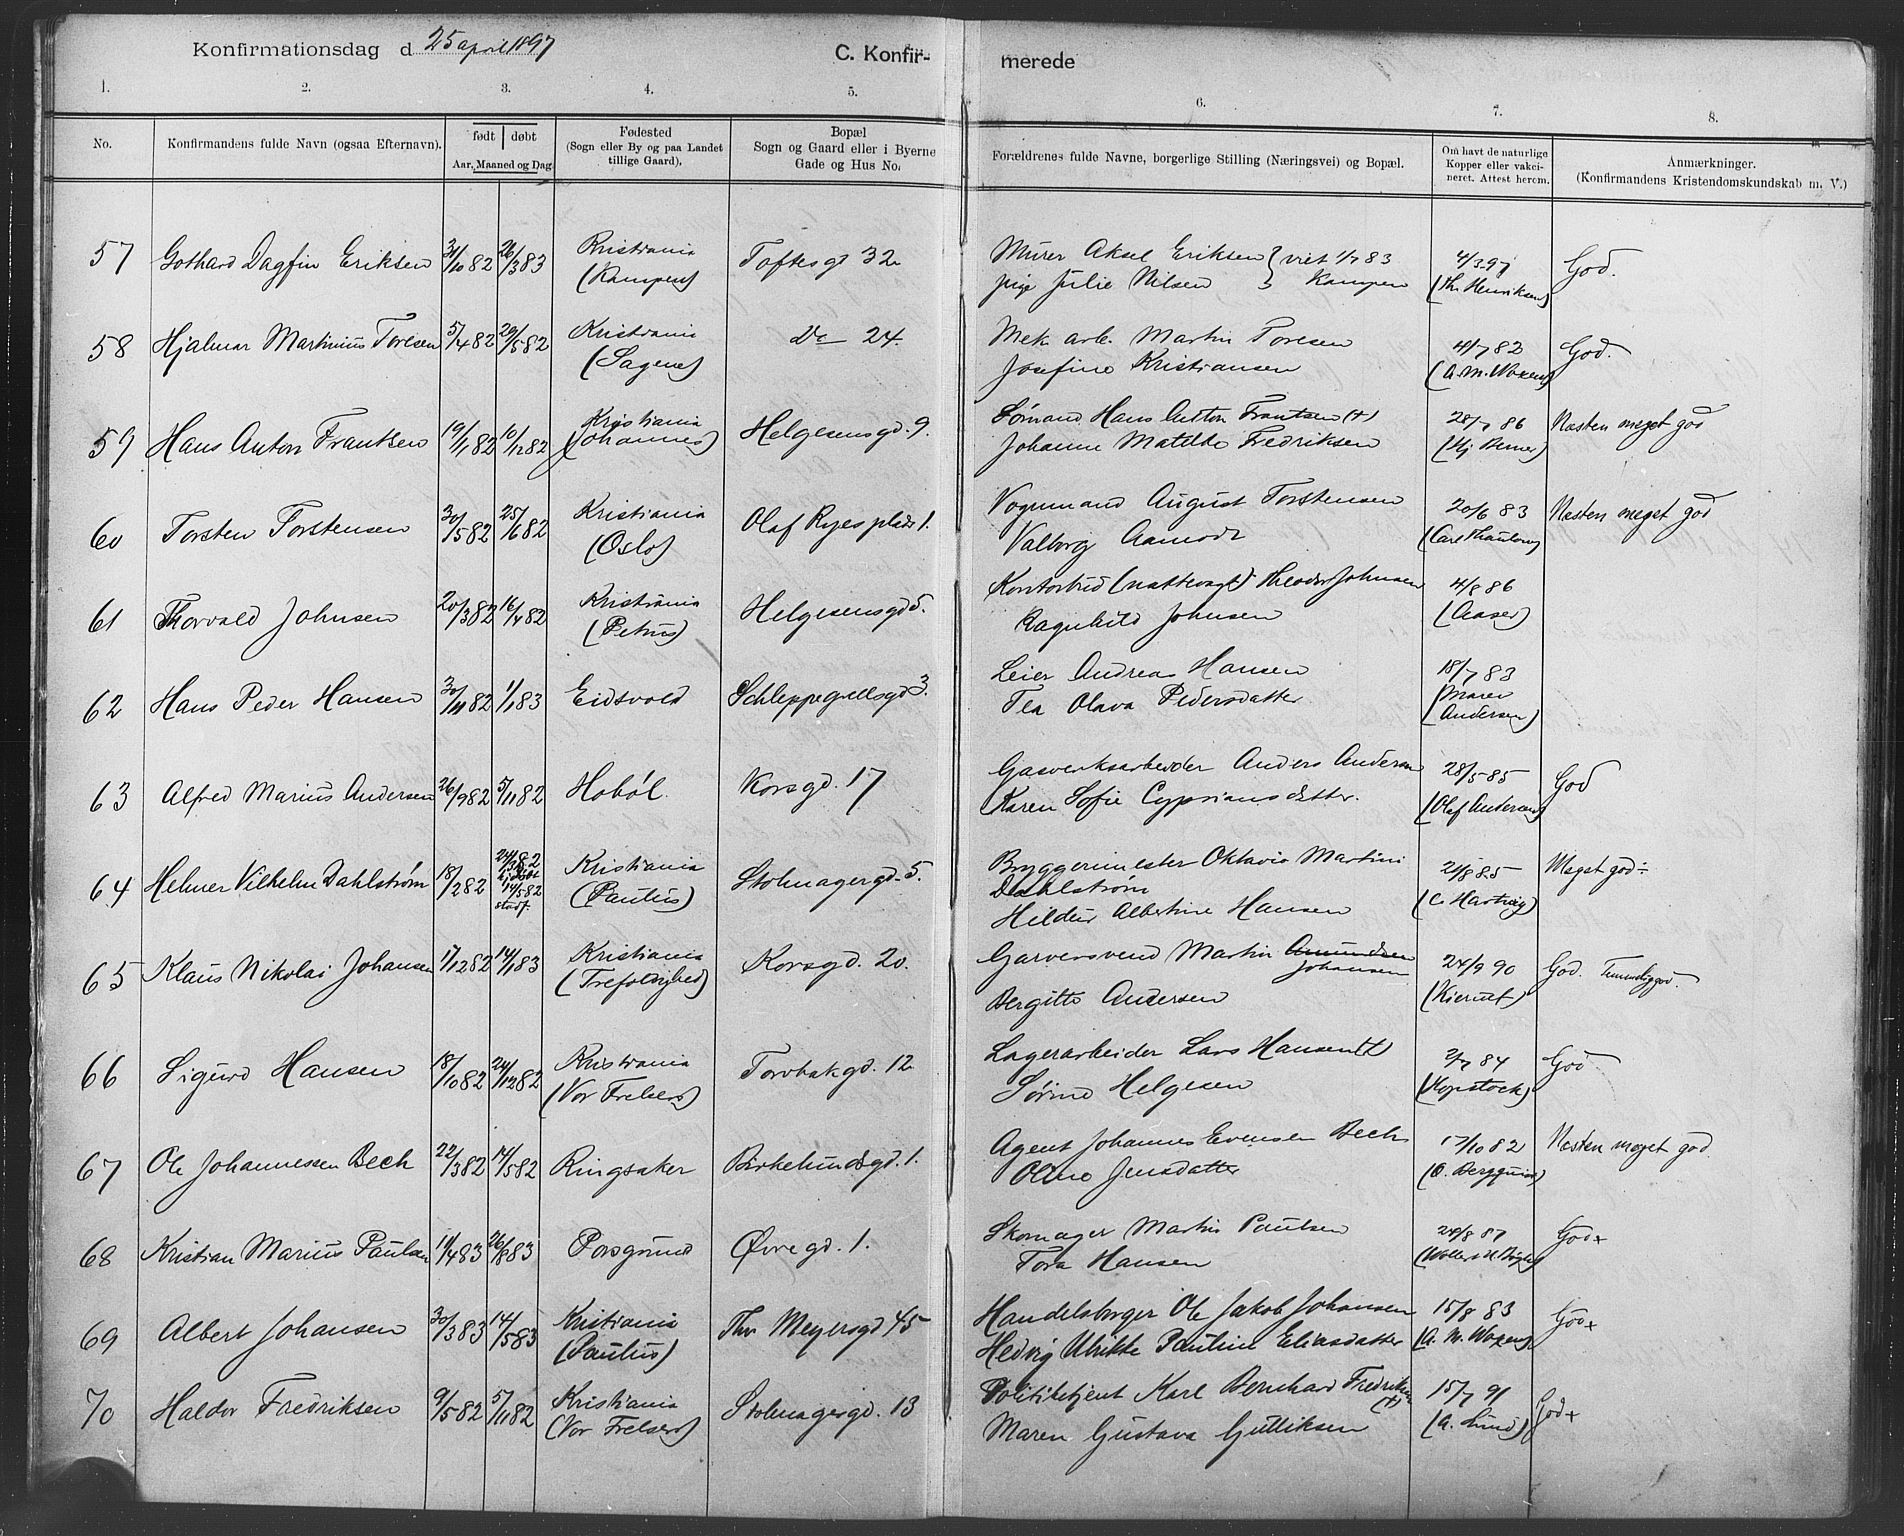 Konfirmationsdag d 25 april 1897
C. Konfir-
merede
1. 2. 3. 4. 5. 6. 7. 8.
No.
Konfirmandens fulde Navn (ogsaa Efternavn).
født døbt
Aar, Maaned og Dag
Fødested
(Sogn eller By og paa Landet
tillige Gaard).
Bopæl
Sogn og Gaard eller i Byerne
Gade og Hus No.
Forældrenes fulde Navne, borgerlige Stilling (Næringsvei) og Bopæl.
Om havt de naturlige
Kopper eller vakci-
neret. Attest herom.
Anmærkninger.
(Konfirmandens Kristendomskundskab m. V.)
57 Gothard Dagfin Eriksen 31/10 82 26/3 83 Kristiania (Kampen) Toftesgd 32
Murer Aksel Eriksen } viet 1/7 83
pige Julie Nilsen } Kampen
4/3 97 (Th. Henriksen) God.
58 Hjalmar Martinius Toresen 5/4 82 29/5 82 Kristiania (Sagene) Do 24.
Mek arb. Martin Toresen
Josefine Kristiansen
4/7 82 (A. M. Waxen) God.
59 Hans Anton Frantsen 19/1 82 10/12 82 Kristiania (Johannes) Helgesensgd. 9.
Sømand Hans Anton Frantsen (+)
Johanne Matilde Fredriksen
28/7 86 (Hj. Berner) Næsten meget god
60 Torsten Torstensen 30/5 82 25/6 82 Kristiania (Oslo) Olaf Ryes plads 1.
Vognmand August Torstensen
Valborg Aamodt
20/6 83 (Carl Thaulow) Næsten meget god
61 Thorvald Johnsen 20/3 82 16/4 82 Kristiania (Petrus) Helgesensgd 5.
Kontorbud (nattevagt) Theodor Johnsen
Ragnhild Johnsen
4/8 86 (Aaser)
62 Hans Peder Hansen 30/11 82 1/1 83 Eidsvold Schleppegrellsgd 3.
Leier Andreas Hansen
Tea Olava Pedersdatter
18/7 83 (Maren Andersen)
63 Alfred Marius Andersen 26/9 82 5/11 82 Hobøl Korsgd. 17
Gasverksarbeider Anders Andersen
Karen Sofie Cypriansdatter.
28/5 85 (Olaf Andersen) God
64 Helmer Vilhelm Dahlstrøm 18/2 82 hjdøbt 14/5 82 stadf. Kristiania (Paulus) Stolmagergd. 5.
Bryggerimester Oktavio Martini
Dahlstrøm
Hildur Albertine Hansen
21/8 85 (C. Hartvig) Meget god ÷
65 Klaus Nikolai Johansen 17/12 82 14/1 83 Kristiania (Trefoldighed) Korsgd. 20.
Garversvend Martin Amundsen
Johansen
Bergitte Andersen
24/9 90 (Kierulf) God. Temmelig god.
66 Sigurd Hansen 18/10 82 24/12 82 Kristiania (Vor Frelsers) Torvbakgd. 12
Lagerarbeider Lars Hansen (+)
Sørine Helgesen
2/7 84 (Kopstock) God
67 Ole Johannessen Bech 22/3 82 14/5 82 Ringsaker Birkelundsgd. 1.
Agent Johannes Evensen Bech
Oline Jensdatter
17/10 82 (O. Berggrav) Næsten meget god.
68 Kristian Marius Paulsen 11/4 83 26/8 83 Porsgrund Øvregd. 1.
Skomager Martin Paulsen
Tora Hansen
29/8 87 God+
69 Albert Johansen 30/3 83 14/5 83 Kristiania (Paulus) Thv Meyersgd 45
Handelsborger Ole Jakob Johansen
Hedvig Ulrikke Pauline Eliasdatter
15/8 83 (A. M. Waxen) God+
70 Haldor Fredriksen 9/5 82 5/11 82 Kristiania (Vor Frelsers) Stolmagergd. 13
Politibetjent Karl Bernhard Fredriksen (+)
Maren Gustava Gulliksen
15/7 91 (A. Lund) God+